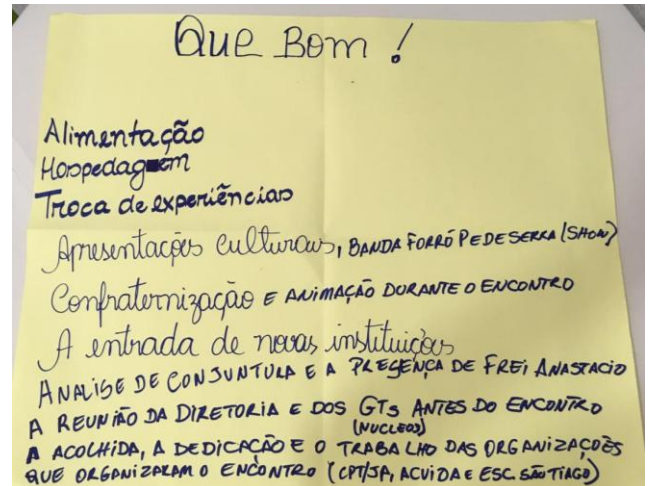 Que Bom !
Alimentação
Hospedagem
Troca de experiências
Apresentações culturais, BANDA FORRÓ PE DE SERRA (SHOW)
Confraternização E ANIMAÇÃO DURANTE O ENCONTRO
A entrada de novas instituições
ANALISE DE CONJUNTURA E A PRESENÇA DE FREI ANASTACIO
A REUNIÃO DA DIRETORIA E DOS GTs ANTES DO ENCONTRO
(NUCLEOS)
A ACOLHIDA, A DEDICAÇÃO E O TRABALHO DAS ORGANIZAÇOÊS
QUE ORGANIZARAM O ENCONTRO (CPT/JP, ACVIDA E ESC. SÃO TIAGO)